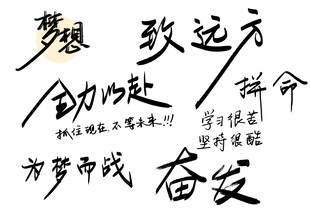 梦想
致远方
全力以赴
拼命
抓住现在.不等未来!!!
学习很苦
坚持很酷
为梦而战
奋发